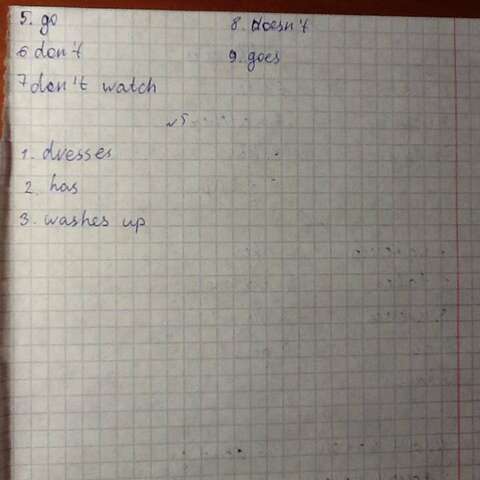 5. go
6 don't
7 don't watch
8. doesn't
9. goes
№5
1. dresses
2. has
3. washes up